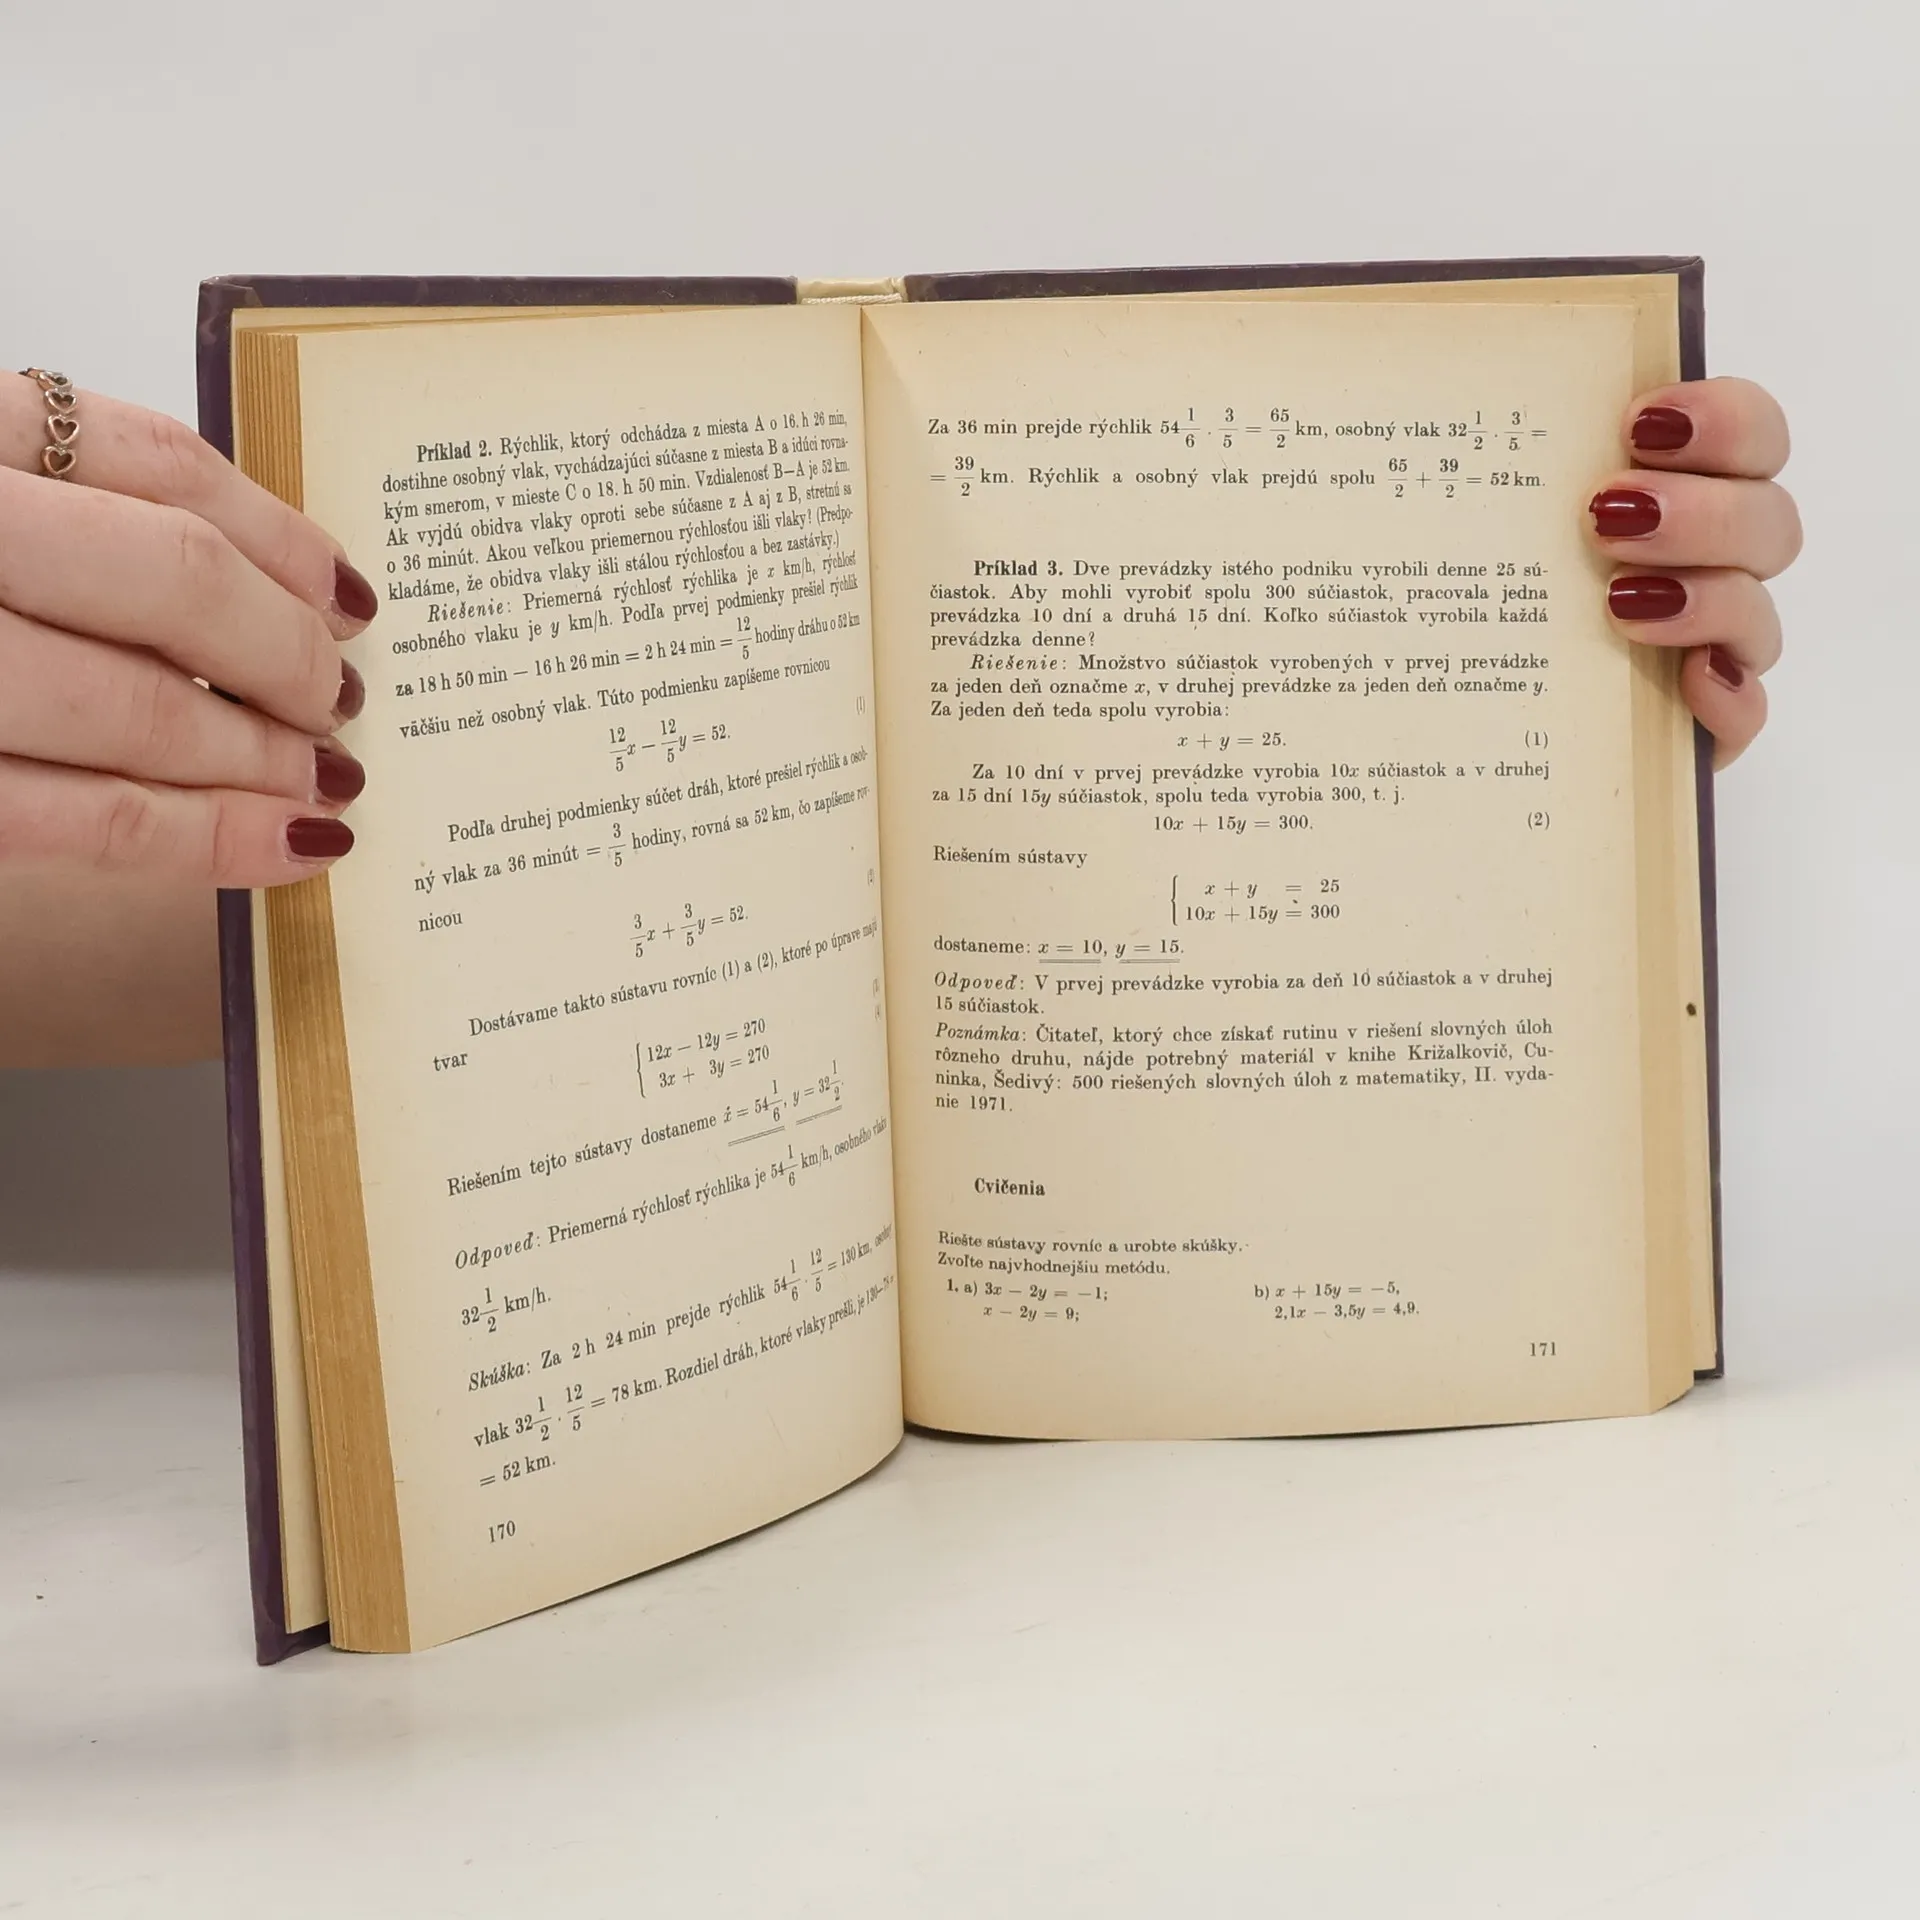 Príklad 2. Rýchlik, ktorý odchádza z miesta A o 16. h 26 min,
dostihne osobný vlak, vychádzajúci súčasne z miesta B a idúci rovna-
kým smerom, v mieste C o 18. h 50 min. Vzdialenosť B—A je 52 km.
Ak vyjdú obidva vlaky oproti sebe súčasne z A aj z B, stretnú sa
o 36 minút. Akou veľkou priemernou rýchlosťou išli vlaky? (Predpo-
kladáme, že obidva vlaky išli stálou rýchlosťou a bez zastávky.)
Riešenie: Priemerná rýchlosť rýchlika je x km/h, rýchlosť
osobného vlaku je y km/h. Podľa prvej podmienky prešiel rýchlik
za 18 h 50 min — 16 h 26 min = 2 h 24 min = 12/5 hodiny dráhu o 52 km
väčšiu než osobný vlak. Túto podmienku zapíšeme rovnicou
12/5 x — 12/5 y = 52. (1)
Podľa druhej podmienky súčet dráh, ktoré prešiel rýchlik a osob-
ný vlak za 36 minút = 3/5 hodiny, rovná sa 52 km, čo zapíšeme rov-
nicou (2)
3/5 x + 3/5 y = 52.
Dostávame takto sústavu rovníc (1) a (2), ktoré po úprave majú
tvar
12x — 12y = 270
3x + 3y = 270
Riešením tejto sústavy dostaneme x = 54 1/6, y = 32 1/2.
Odpoveď: Priemerná rýchlosť rýchlika je 54 1/6 km/h, osobného vlaku
32 1/2 km/h.
Skúška: Za 2 h 24 min prejde rýchlik 54 1/6 . 12/5 = 130 km, osobný
vlak 32 1/2 . 12/5 = 78 km. Rozdiel dráh, ktoré vlaky prešli, je 130—78 =
= 52 km.
170
Za 36 min prejde rýchlik 54 1/6 . 3/5 = 65/2 km, osobný vlak 32 1/2 . 3/5 =
= 39/2 km. Rýchlik a osobný vlak prejdú spolu 65/2 + 39/2 = 52 km.
Príklad 3. Dve prevádzky istého podniku vyrobili denne 25 sú-
čiastok. Aby mohli vyrobiť spolu 300 súčiastok, pracovala jedna
prevádzka 10 dní a druhá 15 dní. Koľko súčiastok vyrobila každá
prevádzka denne?
Riešenie: Množstvo súčiastok vyrobených v prvej prevádzke
za jeden deň označme x, v druhej prevádzke za jeden deň označme y.
Za jeden deň teda spolu vyrobia:
x + y = 25. (1)
Za 10 dní v prvej prevádzke vyrobia 10x súčiastok a v druhej
za 15 dní 15y súčiastok, spolu teda vyrobia 300, t. j.
10x + 15y = 300. (2)
Riešením sústavy
x + y = 25
10x + 15y = 300
dostaneme: x = 10, y = 15.
Odpoveď: V prvej prevádzke vyrobia za deň 10 súčiastok a v druhej
15 súčiastok.
Poznámka: Čitateľ, ktorý chce získať rutinu v riešení slovných úloh
rôzneho druhu, nájde potrebný materiál v knihe Križalkovič, Cu-
ninka, Šedivý: 500 riešených slovných úloh z matematiky, II. vyda-
nie 1971.
Cvičenia
Riešte sústavy rovníc a urobte skúšky.
Zvoľte najvhodnejšiu metódu.
1. a) 3x — 2y = —1; b) x + 15y = —5,
x — 2y = 9; 2,1x — 3,5y = 4,9.
171